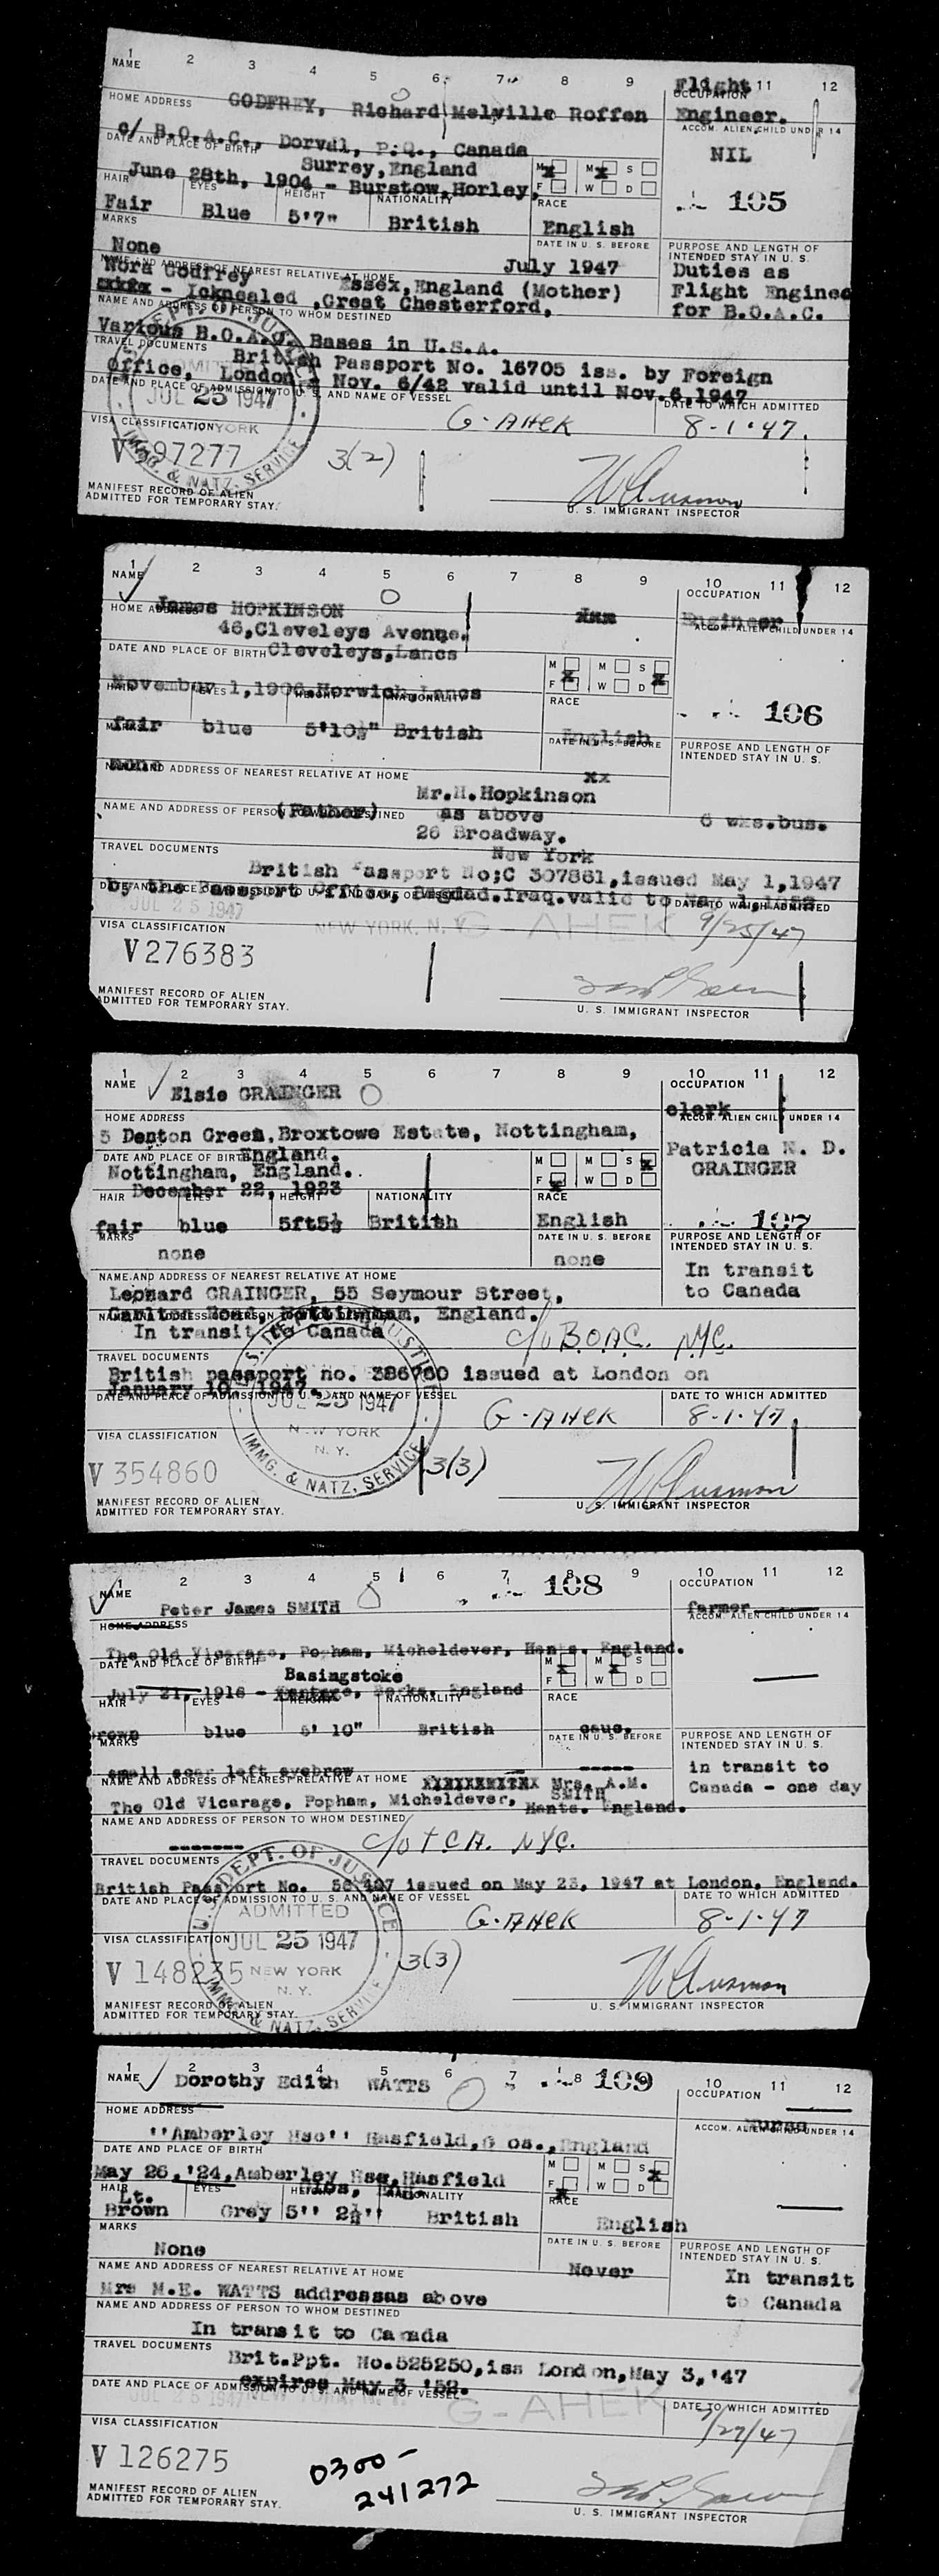 1 2 3 4 5 6 7 8 9 11 12
NAME
GODFREY, Richard Melville Roffen
Flight
OCCUPATION
Engineer.
HOME ADDRESS
c/ B.O.A.C., Dorval, P.Q., Canada
ACCOM. ALIEN CHILD UNDER 14
NIL
DATE AND PLACE OF BIRTH
Surrey, England
June 28th, 1904 - Burstow, Horley,
M X M X S
F W D
105
HAIR EYES HEIGHT NATIONALITY RACE
Fair Blue 5'7" British English
MARKS
None
DATE IN U. S. BEFORE
July 1947
PURPOSE AND LENGTH OF
INTENDED STAY IN U. S.
Duties as
Flight Enginee
for B.O.A.C.
NAME AND ADDRESS OF NEAREST RELATIVE AT HOME
Nora Godfrey Essex, England (Mother)
- Ickncaled ,Great Chesterford,
NAME AND ADDRESS OF PERSON TO WHOM DESTINED
Various B.O.A.C. Bases in U.S.A.
TRAVEL DOCUMENTS
British Passport No. 16705 iss. by Foreign
Office, London, Nov. 6/42 valid until Nov.6,1947
DATE AND PLACE OF ADMISSION TO U. S. AND NAME OF VESSEL
JUL 25 1947
G-AHEK
DATE TO WHICH ADMITTED
8-1-47.
VISA CLASSIFICATION
V 97277
3(2)
IMMG. & NATZ. SERVICE
MANIFEST RECORD OF ALIEN
ADMITTED FOR TEMPORARY STAY.
U. S. IMMIGRANT INSPECTOR
1 2 3 4 5 6 7 8 9 10 11 12
NAME
James HOPKINSON
OCCUPATION
Engineer
HOME ADDRESS
46,Cleveleys Avenue.
Cleveleys,Lancs
ACCOM. ALIEN CHILD UNDER 14
DATE AND PLACE OF BIRTH
November 1,1906,Horwich,Lancs
M X M S
F W D X
106
HAIR EYES HEIGHT NATIONALITY RACE
fair blue 5'10½" British English
MARKS
none
DATE IN U. S. BEFORE
xx
PURPOSE AND LENGTH OF
INTENDED STAY IN U. S.
6 wks.bus.
NAME AND ADDRESS OF NEAREST RELATIVE AT HOME
Mr.H.Hopkinson
(Father) as above
NAME AND ADDRESS OF PERSON TO WHOM DESTINED
26 Broadway.
New York
TRAVEL DOCUMENTS
British Passport No;C 307861,issued May 1,1947
by the Passport Office, Bagdad.Iraq.valid to
DATE AND PLACE OF ADMISSION TO U. S. AND NAME OF VESSEL
JUL 25 1947 NEW YORK, N. Y. G-AHEK
DATE TO WHICH ADMITTED
9/25/47
VISA CLASSIFICATION
V276383
MANIFEST RECORD OF ALIEN
ADMITTED FOR TEMPORARY STAY.
U. S. IMMIGRANT INSPECTOR
1 2 3 4 5 6 7 8 9 10 11 12
NAME
Elsie GRAINGER
OCCUPATION
clerk
HOME ADDRESS
5 Denton Green,Broxtowe Estate, Nottingham,
England.
ACCOM. ALIEN CHILD UNDER 14
Patricia N. D.
GRAINGER
DATE AND PLACE OF BIRTH
Nottingham, England..
December 22, 1923
M M S X
F X W D
107
HAIR EYES HEIGHT NATIONALITY RACE
fair blue 5ft5½ British English
MARKS
none
DATE IN U. S. BEFORE
none
PURPOSE AND LENGTH OF
INTENDED STAY IN U. S.
In transit
to Canada
NAME AND ADDRESS OF NEAREST RELATIVE AT HOME
Leonard GRAINGER, 55 Seymour Street,
Carlton Road, Nottingham, England.
NAME AND ADDRESS OF PERSON TO WHOM DESTINED
In transit to Canada
c/o B.O.A.C. NYC.
TRAVEL DOCUMENTS
British passport no. 386760 issued at London on
January 10, 1947.
DATE AND PLACE OF ADMISSION TO U. S. AND NAME OF VESSEL
JUL 25 1947
NEW YORK
N. Y.
G-AHEK
DATE TO WHICH ADMITTED
8-1-47
VISA CLASSIFICATION
V 354860
3(3)
IMMG. & NATZ. SERVICE
MANIFEST RECORD OF ALIEN
ADMITTED FOR TEMPORARY STAY.
U. S. IMMIGRANT INSPECTOR
1 2 3 4 5 6 7 8 9 10 11 12
108
NAME
Peter James SMITH
OCCUPATION
farmer
HOME ADDRESS
The Old Vicarage, Popham, Micheldever, Hants. England.
ACCOM. ALIEN CHILD UNDER 14
DATE AND PLACE OF BIRTH
Basingstoke
July 21, 1916 - Berks, England
M X M X S
F W D
HAIR EYES HEIGHT NATIONALITY RACE
rown blue 5' 10" British cauc.
MARKS
small scar left eyebrow
DATE IN U. S. BEFORE
-----
PURPOSE AND LENGTH OF
INTENDED STAY IN U. S.
in transit to
Canada - one day
NAME AND ADDRESS OF NEAREST RELATIVE AT HOME
Mrs. A.M.
SMITH
The Old Vicarage, Popham, Micheldever, Hants. England.
NAME AND ADDRESS OF PERSON TO WHOM DESTINED
c/o TCA. NYC.
TRAVEL DOCUMENTS
British Passport No. issued on May 23, 1947 at London, England.
DATE AND PLACE OF ADMISSION TO U. S. AND NAME OF VESSEL
U. S. DEPT. OF JUSTICE
ADMITTED
JUL 25 1947
NEW YORK
N. Y.
IMMG. & NATZ. SERVICE
G-AHEK
DATE TO WHICH ADMITTED
8-1-47
VISA CLASSIFICATION
V 148235
3(3)
MANIFEST RECORD OF ALIEN
ADMITTED FOR TEMPORARY STAY.
U. S. IMMIGRANT INSPECTOR
1 2 3 4 5 6 7 8 10 11 12
109
NAME
Dorothy Edith WATTS
OCCUPATION
Nurse
HOME ADDRESS
''Amberley Hse'' Hasfield, England
ACCOM. ALIEN CHILD UNDER 14
DATE AND PLACE OF BIRTH
May 26,'24,Amberley Hse,Hasfield
M M S X
F X W D
HAIR EYES HEIGHT NATIONALITY RACE
Lt.
Brown Grey 5'' 2½'' British English
MARKS
None
DATE IN U. S. BEFORE
Never
PURPOSE AND LENGTH OF
INTENDED STAY IN U. S.
In transit
to Canada
NAME AND ADDRESS OF NEAREST RELATIVE AT HOME
Mrs M.E. WATTS addressas above
NAME AND ADDRESS OF PERSON TO WHOM DESTINED
In transit to Canada
TRAVEL DOCUMENTS
Brit.Ppt. No.525250,iss London,May 3,'47
expires May 3 '52.
DATE AND PLACE OF ADMISSION TO U. S. AND NAME OF VESSEL
G-AHEK
DATE TO WHICH ADMITTED
9/27/47
VISA CLASSIFICATION
V 126275
0300-
241272
MANIFEST RECORD OF ALIEN
ADMITTED FOR TEMPORARY STAY.
U. S. IMMIGRANT INSPECTOR